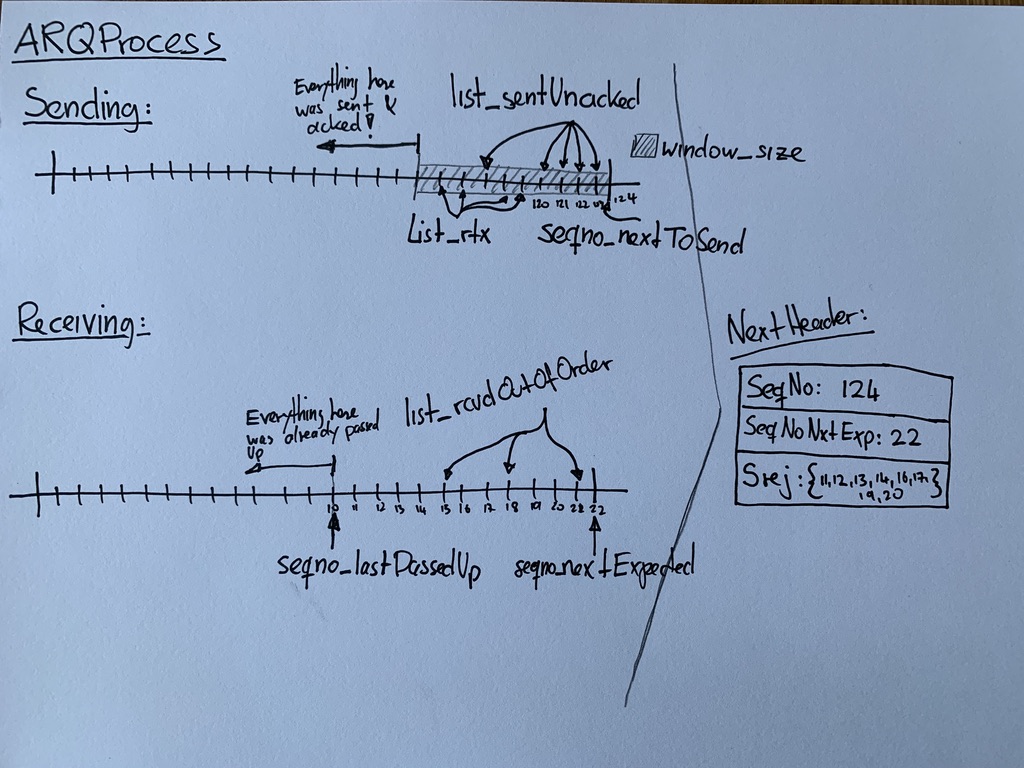 ARQProcess
Sending:
Everything here
was sent &
acked!
list_sentUnacked
window_size
120 121 122 123 124
List_rtx
seqno_nextToSend
Receiving:
Everything here
was already passed
Up
list_rcvdOutOfOrder
10 11 12 13 14 15 16 17 18 19 20 21 22
seqno_lastPassedUp
seqno_nextExpected
NextHeader:
SeqNo: 124
SeqNoNxtExp: 22
Srej: {11,12,13,14,16,17,
19,20}